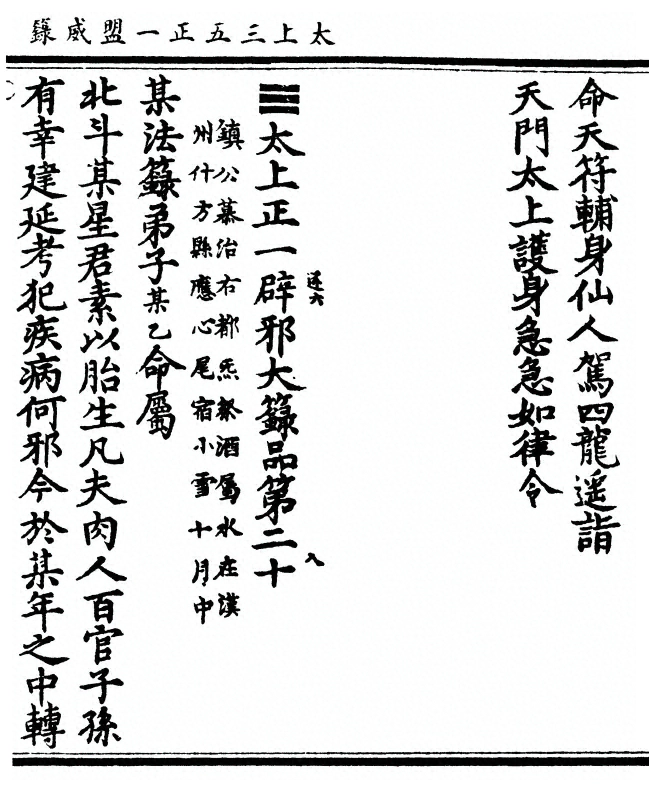 太上三五正一盟威籙
命天符輔身仙人駕四龍遥詣
天門太上護身急急如律令
太上正一辟邪大籙品第二十
还六
八
鎮公慕治右都炁祭酒屬水在漢
州什方縣應心尾宿小雪十月中
某法籙弟子某乙命屬
北斗某星君素以胎生凡夫肉人百官子孫
有幸建延考犯疾病何邪今於某年之中轉